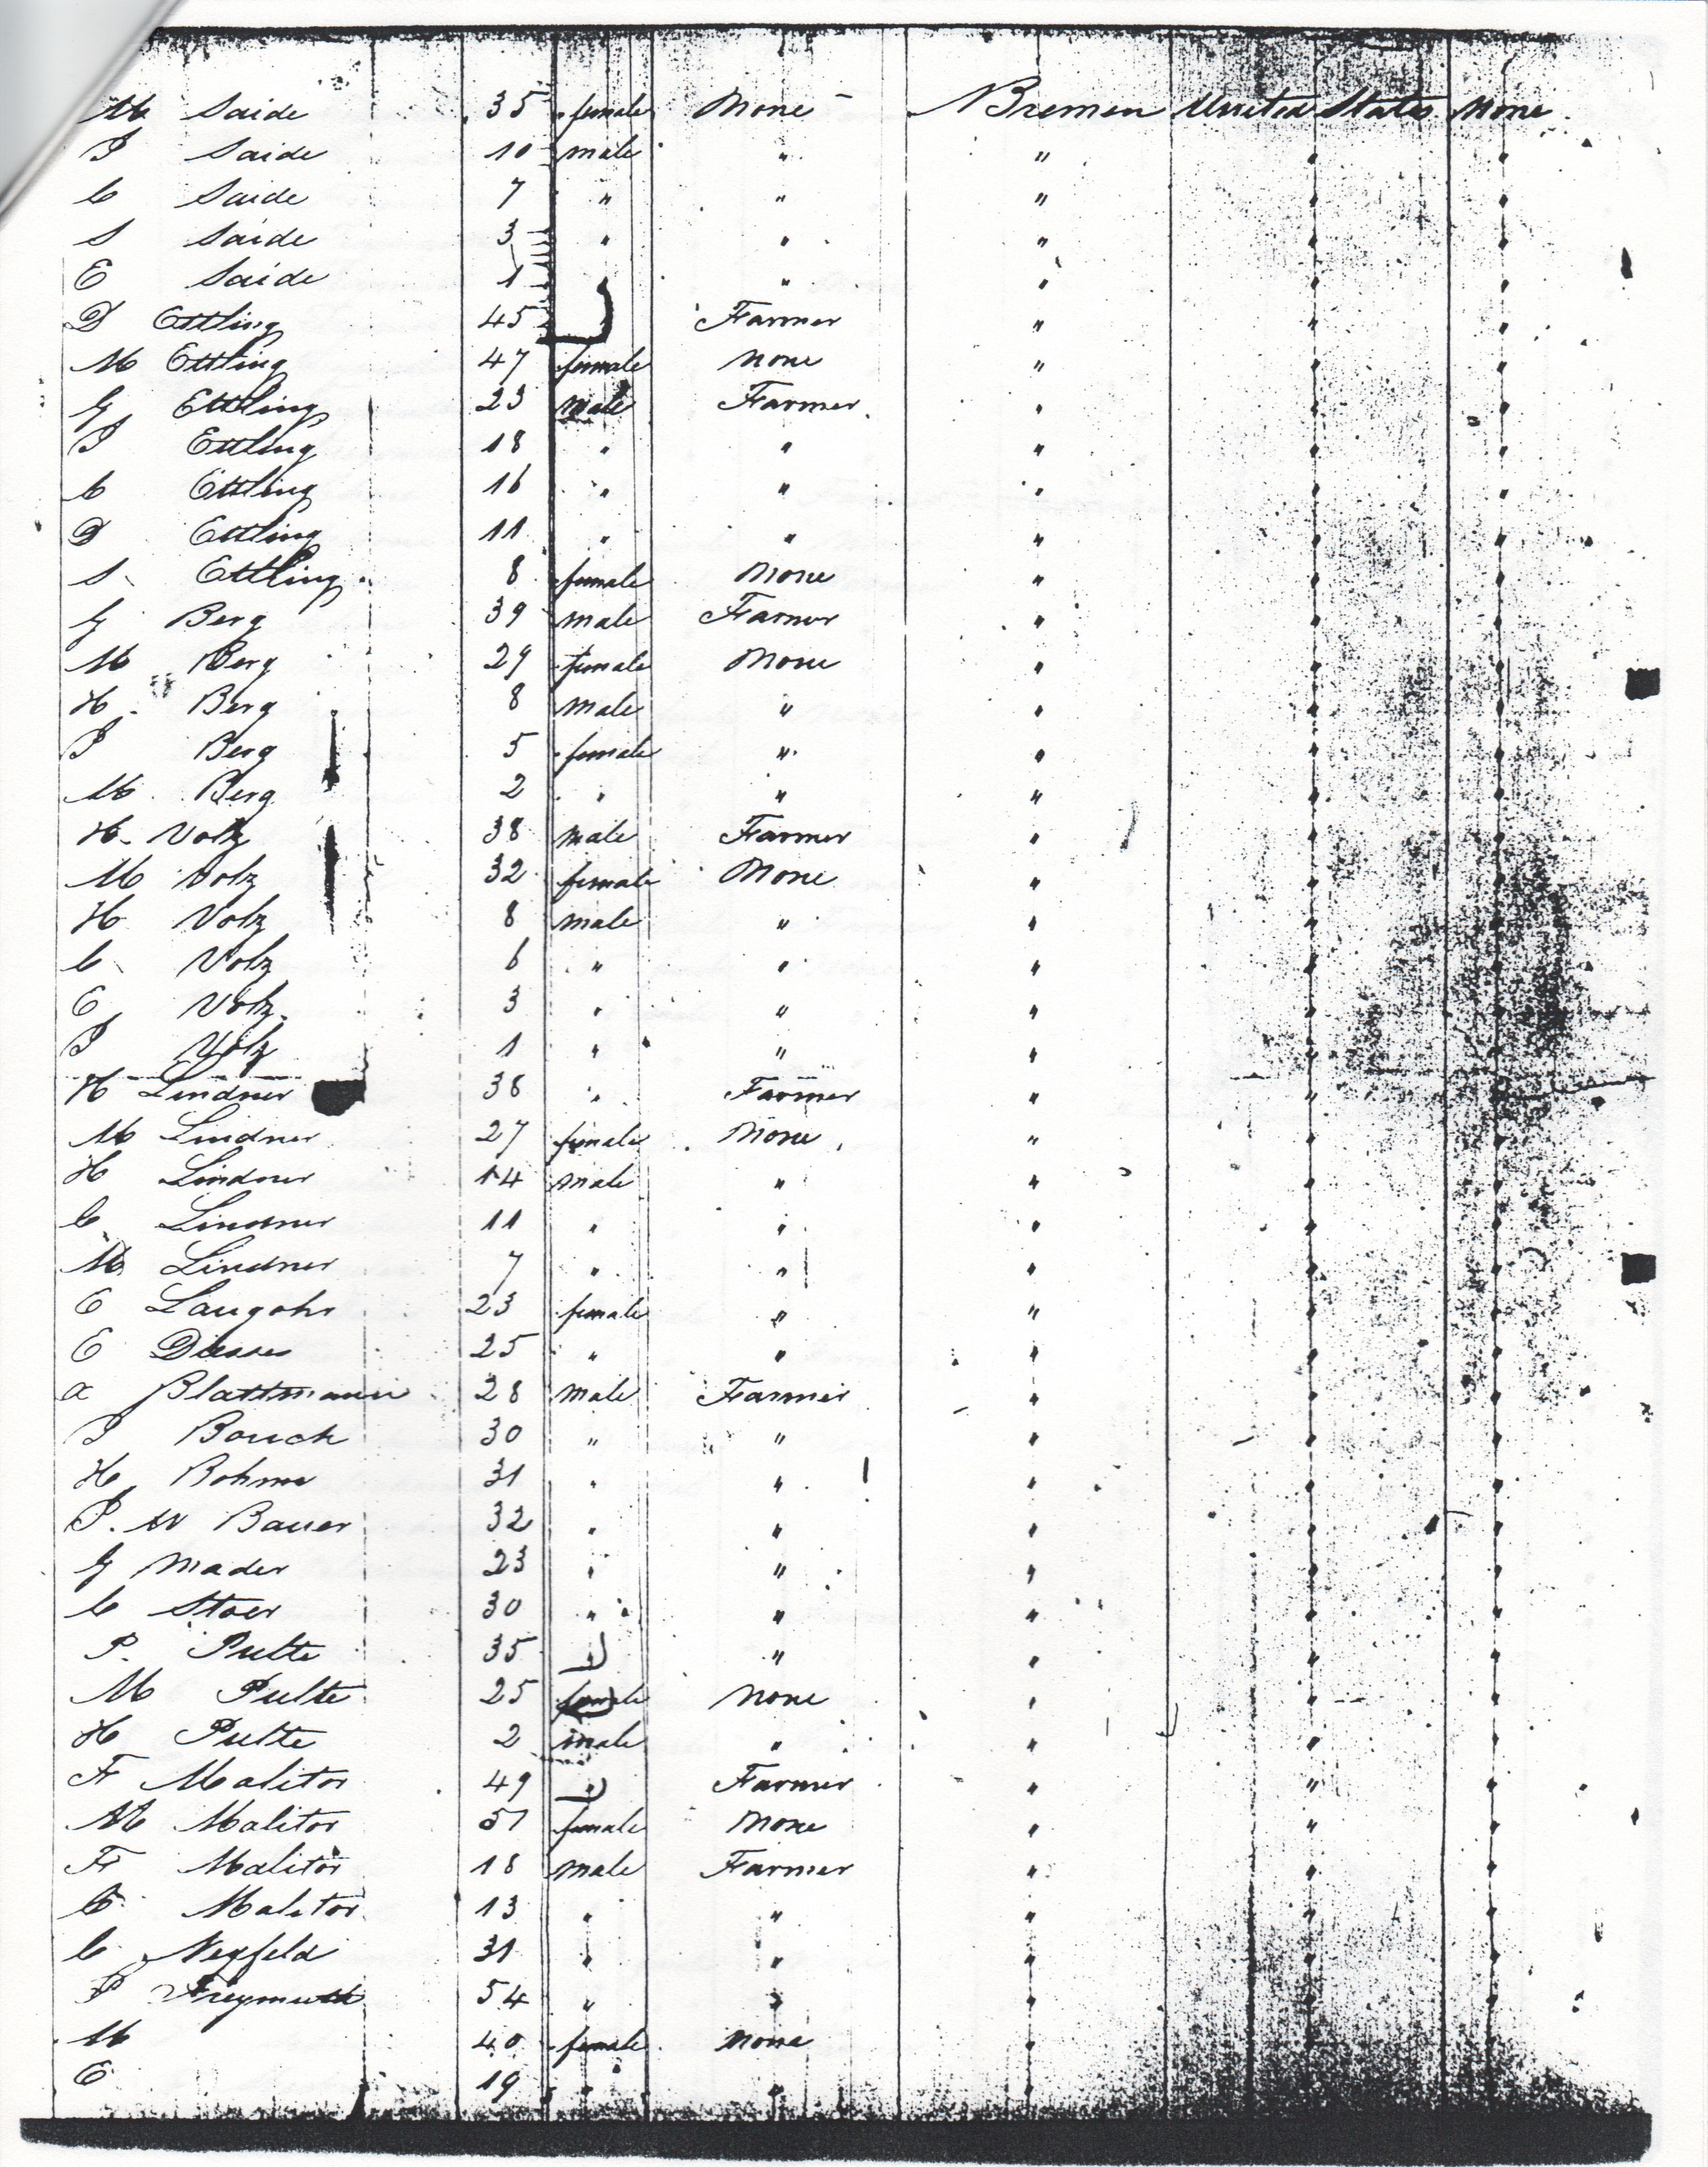 M Saide 35 female None Bremen United States None
J Saide 10 male " " " "
C Saide 7 " " " " "
S Saide 3 " " " " "
E Saide 1 " " " "
D Ettling 45 " Farmer " " "
M Ettling 47 female none " " "
G Ettling 23 male Farmer " " "
J Ettling 18 " " " " "
C Ettling 16 " " " " "
D Ettling 11 " " " " "
S Ettling 8 female None " " "
G Berg 39 male Farmer " " "
M Berg 29 female None " " "
H Berg 8 male " " " "
J Berg 5 female " " " "
M Berg 2 " " " " "
H. Volz 38 male Farmer " " "
M Volz 32 female None " " "
H Volz 8 male " " " "
C Volz 6 " " " " "
E Volz 3 " " " " "
J Volz 1 " " " " "
H Lindner 38 " Farmer " " "
M Lindner 27 female None " " "
H Lindner 14 male " " " "
C Lindner 11 " " " " "
M Lindner 7 " " " " "
E Langohr 23 female " " " "
E 25 " " " " "
A Blattmann 28 male Farmer " " "
J Bauch 30 " " " " "
H Bohme 31 " " " " "
J. W Bauer 32 " " " " "
G Mader 23 " " " " "
C Stoer 30 " " " " "
P. Pulte 35 " " " " "
M Pulte 25 female None " " "
H Pulte 2 male " " " "
Fr Malitor 49 " Farmer " " "
M Malitor 51 female None " " "
Fr Malitor 18 male Farmer " " "
C Malitor 13 " " " " "
C Neyfeld 31 " " " " "
P Freymuth 54 " " " " "
M 40 female None " " "
E 19 " " " " "